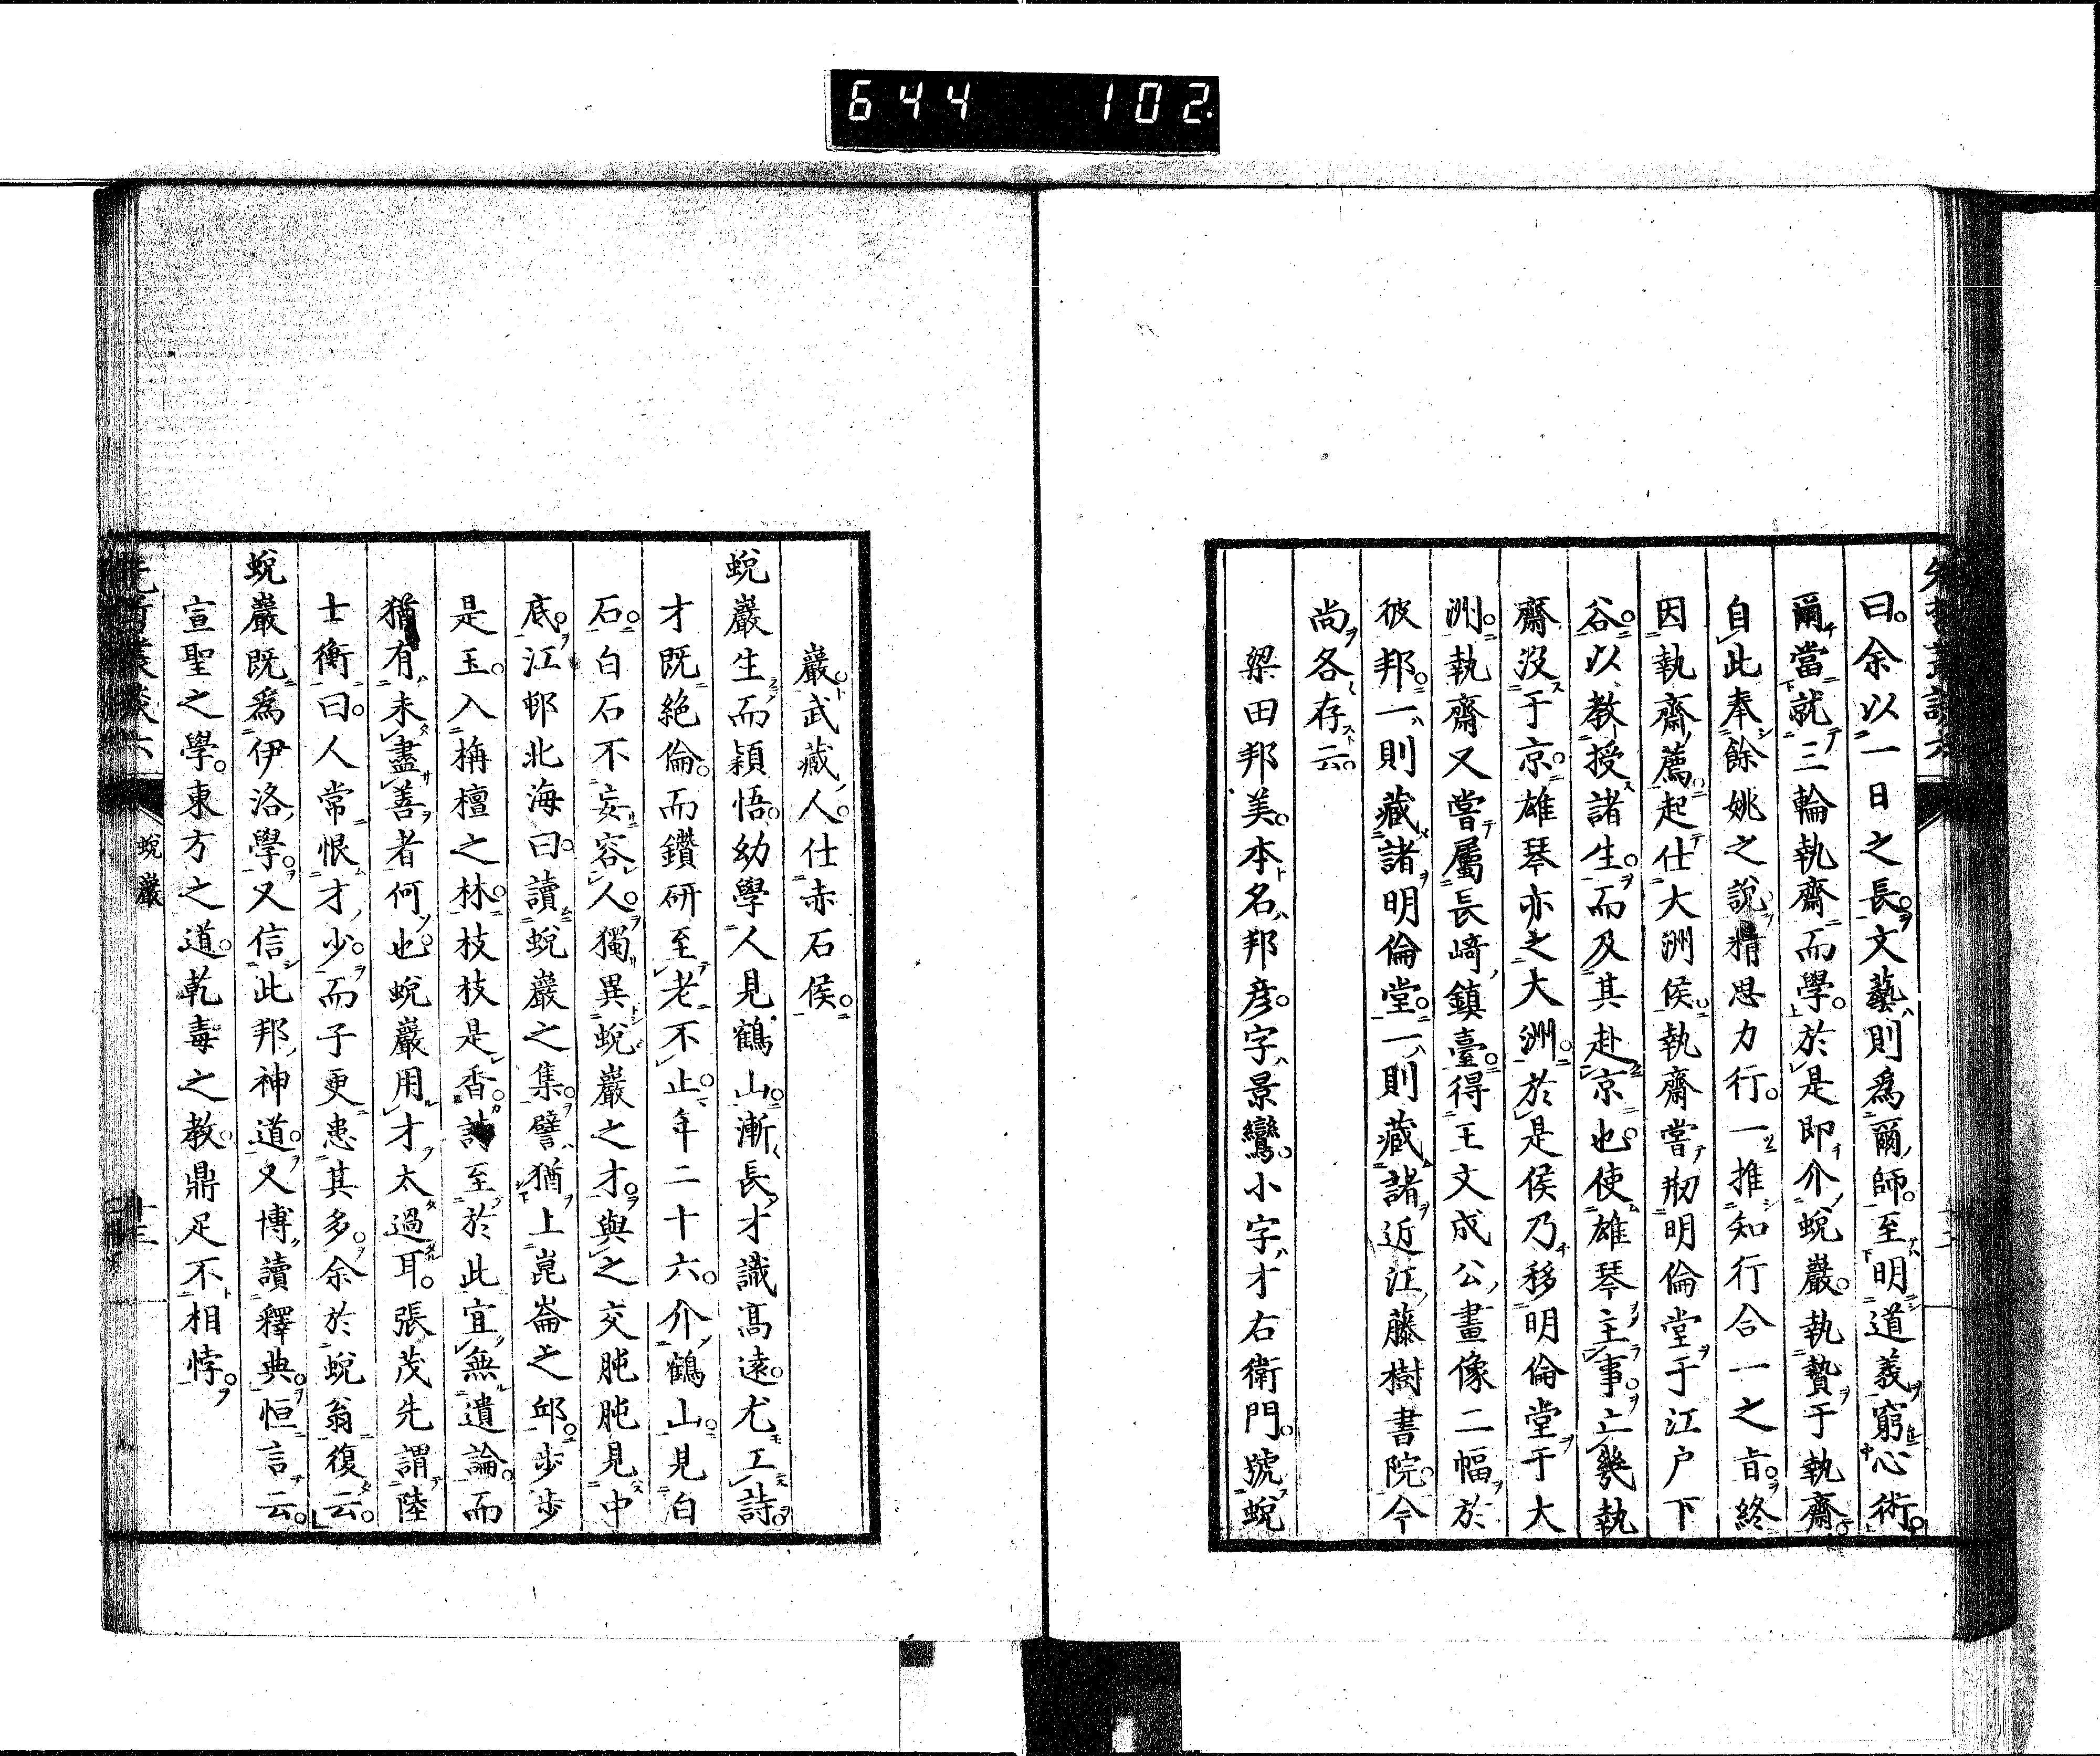 644 102
曰余以一日之長文藝則爲爾師至明道義窮心術
爾當就三輪執齋而學於是即介蛻巖執贄于執齋
自此奉餘姚之說精思力行一推知行合一之旨終
因執齋薦起仕大洲侯執齋嘗剏明倫堂于江戶下
谷以教授諸生而及其赴京也使雄琴主事亡幾執
齋沒于京雄琴亦之大洲於是侯乃移明倫堂于大
洲執齋又嘗屬長崎鎮臺得王文成公畫像二幅於
彼邦一則藏諸明倫堂一則藏諸近江藤樹書院今
尚各存云
梁田邦美本名邦彥字景鸞小字才右衛門號蛻
巖武藏人仕赤石侯
蛻巖生而穎悟幼學人見鶴山漸長才識高遠尤工詩
才既絶倫而鑽研至老不止年二十六介鶴山見白
石白石不妄容人獨異蛻巖之才與之交肫肫見中
底江邨北海曰讀蛻巖之集譬猶上崑崙之邱步步
是玉入栴檀之林枝枝是香詩至於此宜無遺論而
猶有未盡善者何也蛻巖用才太過耳張茂先謂陸
士衡曰人常恨才少而子更患其多余於蛻翁復云
蛻巖既爲伊洛學又信此邦神道又博讀釋典恒言云
宣聖之學東方之道乾毒之教鼎足不相悖
先哲叢談六
蛻巖
十三